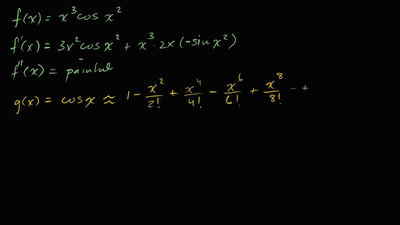 f(x) = x³cos x²
f'(x) = 3x²cos x² + x³·2x(-sin x²)
f''(x) = painful
g(x) = cos x ≈ 1 - x²/2! + x⁴/4! - x⁶/6! + x⁸/8! - +